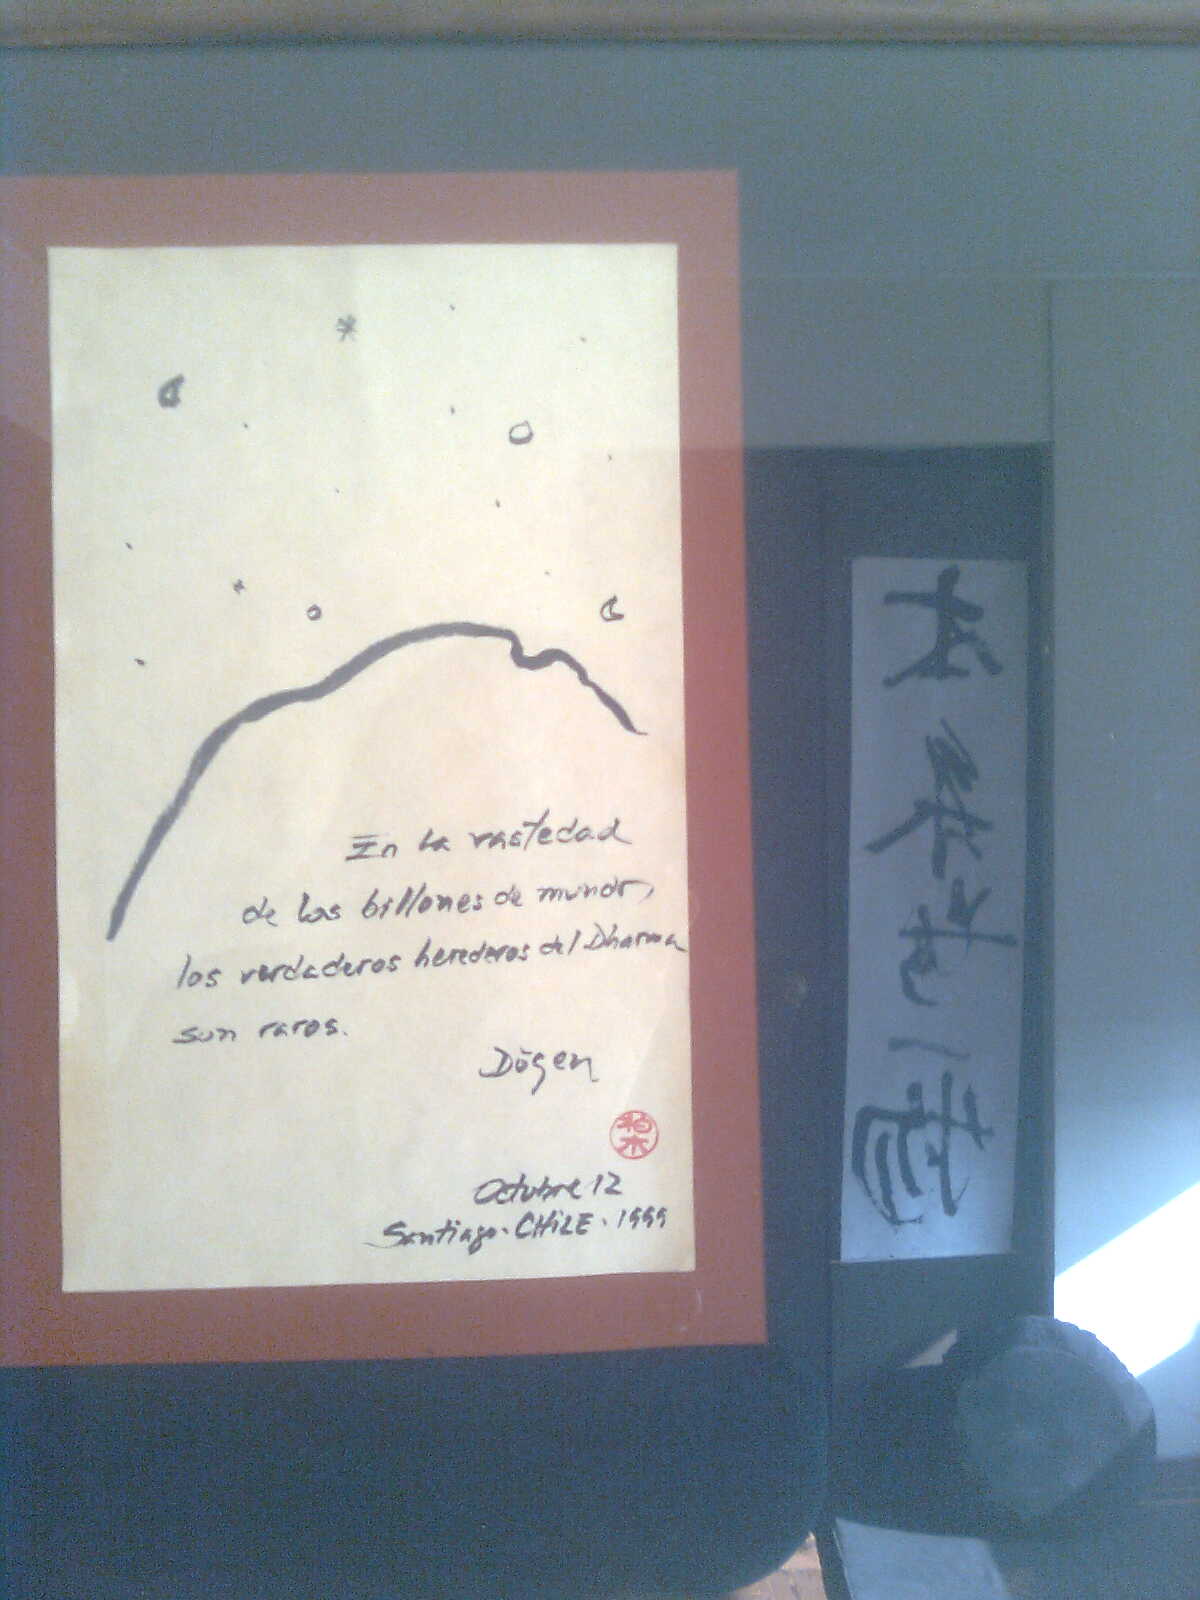 En la vastedad
de los billones de mundos,
los verdaderos herederos del Dharma
son raros.
Dōgen
柏木
Octubre 12
Santiago. CHILE. 1999